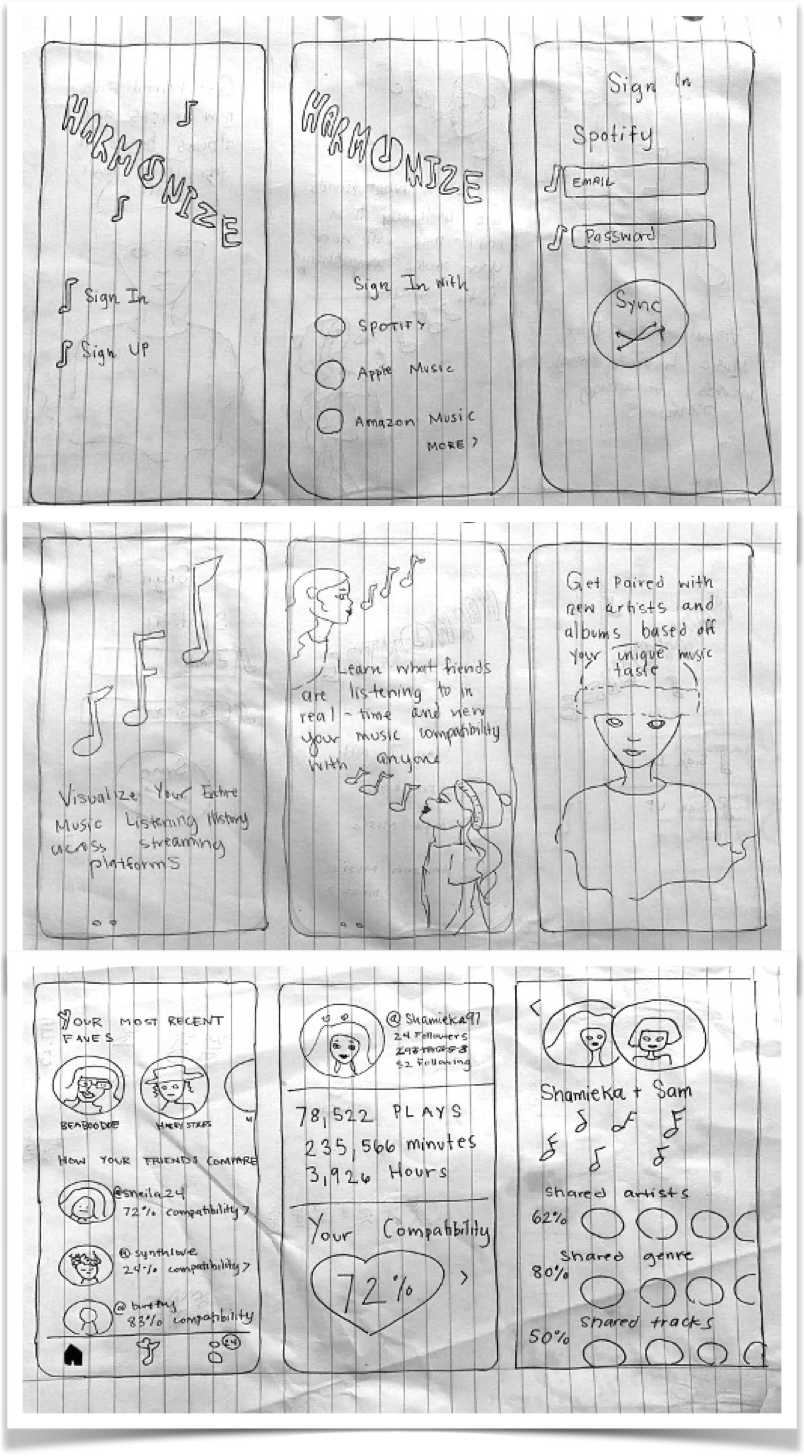 HARMONIZE
Sign In
Sign UP
HARMONIZE
Sign In With
SPOTIFY
Apple Music
Amazon Music
MORE >
Sign In
Spotify
EMAIL
Password
Sync
Visualize Your Entire
Music Listening History
across streaming
platforms
Learn what friends
are listening to in
real-time and view
your music compatibility
with anyone
Get Paired with
new artists and
albums based off
your unique music
taste
YOUR MOST RECENT
FAVES
BEABOODOE
HARRY STYLES
HOW YOUR FRIENDS COMPARE
@sheila24
72% compatibility >
@synthlove
24% compatibility >
@
83% compatibility
24
@Shamieka97
24 Followers
52 Following
78,522 PLAYS
235,566 minutes
3,926 Hours
Your Compatibility
72% >
<
Shamieka + Sam
Shared artists
62%
Shared genre
80%
Shared tracks
50%